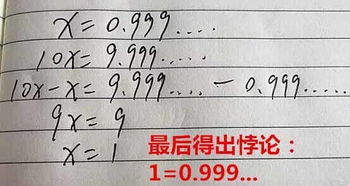 x = 0.999....
10x = 9.999.....
10x - x = 9.999.... - 0.999.....
9x = 9
x = 1
最后得出悖论：
1=0.999...